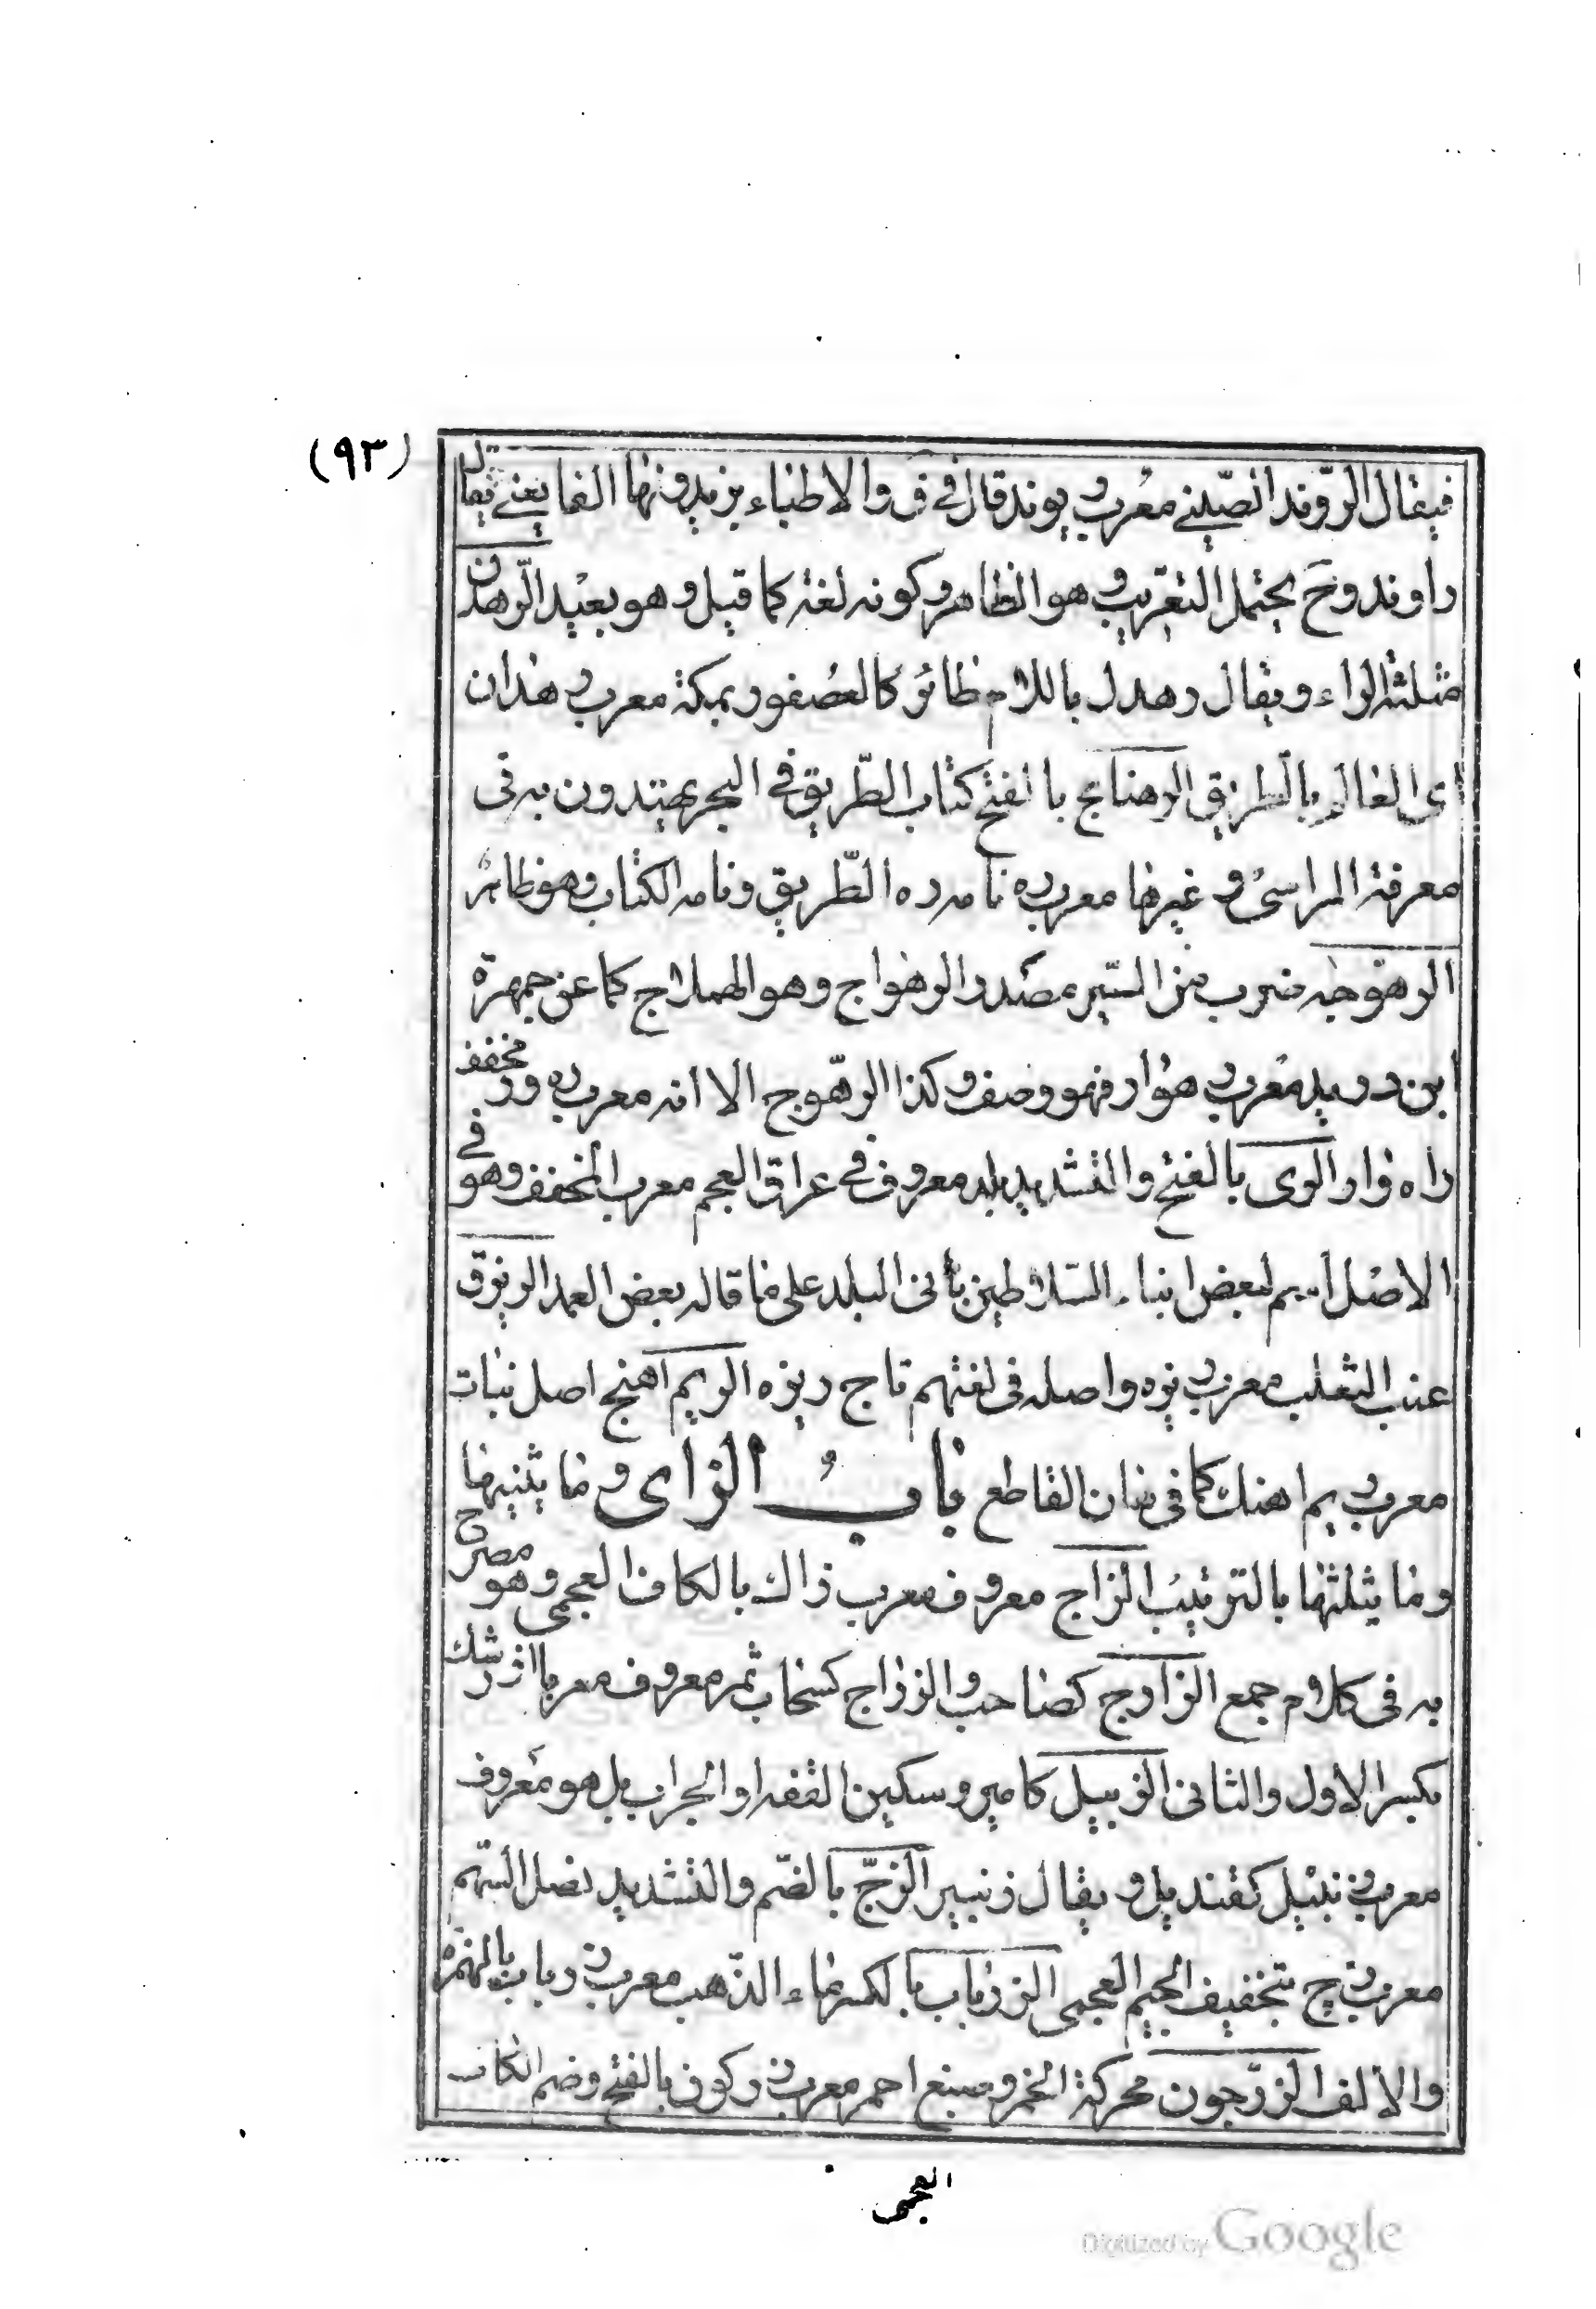 (٩٣)
فيقال الرّوند الصّيني معرب ريوند قال في ق والاطباء يزيدونها الفا يعني يقال
راوند وح يحتمل التعريب وهو الظاهر وكونه لغة كما قيل وهو بعيد الرّهدن
مثلثة الراء ويقال رهدل باللام طائر كالعصفور بمكة معرب رهدان
اى العالم بالطريق الرهنامج بالفتح كتاب الطّريق في البحر يهتدون به في
معرفة المراسي وغيرها معرب ره نامه ره الطّريق ونامه الكتاب وهو ظاهر
الرهوجه ضرب من السّير مصدر الرهواج وهو الهملاج كما عن جمهرة
ابن دريد معرب رهوار فهو وصف وكذا الرّهوج الا انه معرب رهور مخفف
راه وار الرى بالفتح والتشديد بلد معروف في عراق العجم معرب المخفف وهو في
الاصل اسم لبعض ابناء السّلاطين بانى البلد على ما قاله بعض العجم الريوق
عنب الثعلب معرب ريوه واصله في لغتهم تاج ريزه الريم آهنج اصل نبات
معرب ريم اهنك كما في برهان القاطع باب الزاى وما يثنيها
وما يثلثها بالترتيب الزاج معروف معرب زاك بالكاف العجمى وهو مصرح
به في كلام جمع الزارج كصاحب والزراج كسحاب ثمر معروف معربا ازرشك
بكسر الاول والثانى الزبيل كامير وسكين القفه او الجراب بل هو معروف
معرب زنبيل كقنديل ويقال زنبير الزجّ بالضم والتشديد نصل السّهم
معرب زج بتخفيف الجيم العجمى الزرياب بالكسر ماء الذّهب معرب زرياب بالهمزة
والالف الزرجون محركة الخمر وصبغ احمر معرب زركون بالفتح وضم الكاف
العجمى
Digitized by Google